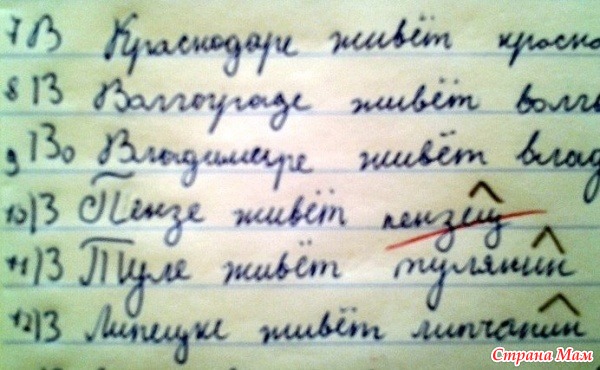 7 В Краснодаре живёт красно
8 В Волгограде живёт волг
9 Во Владимире живёт влад
10) В Пензе живёт пензец
11) В Туле живёт тулянин
12) В Липецке живёт липчанин
Страна Мам